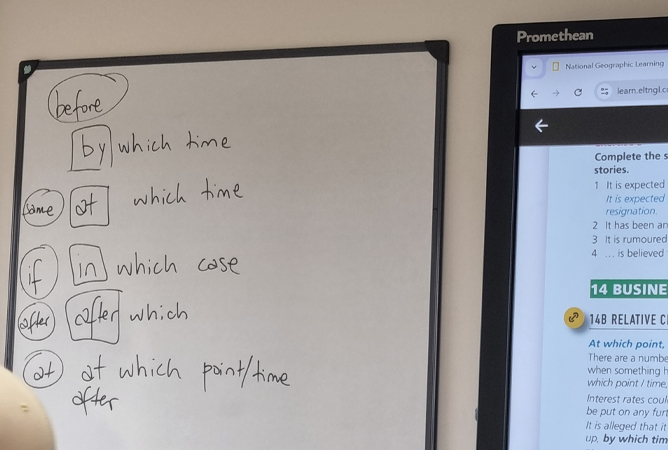 before
by which time
same at which time
if in which case
after after which
at at which point/time
after
Promethean
National Geographic Learning
learn.eltngl.c
Complete the s
stories.
1 It is expected
It is expected
resignation.
2 It has been an
3 It is rumoured
4 ... is believed
14 BUSINE
14B RELATIVE C
At which point,
There are a numbe
when something h
which point / time,
Interest rates coul
be put on any furt
It is alleged that it
up, by which tim